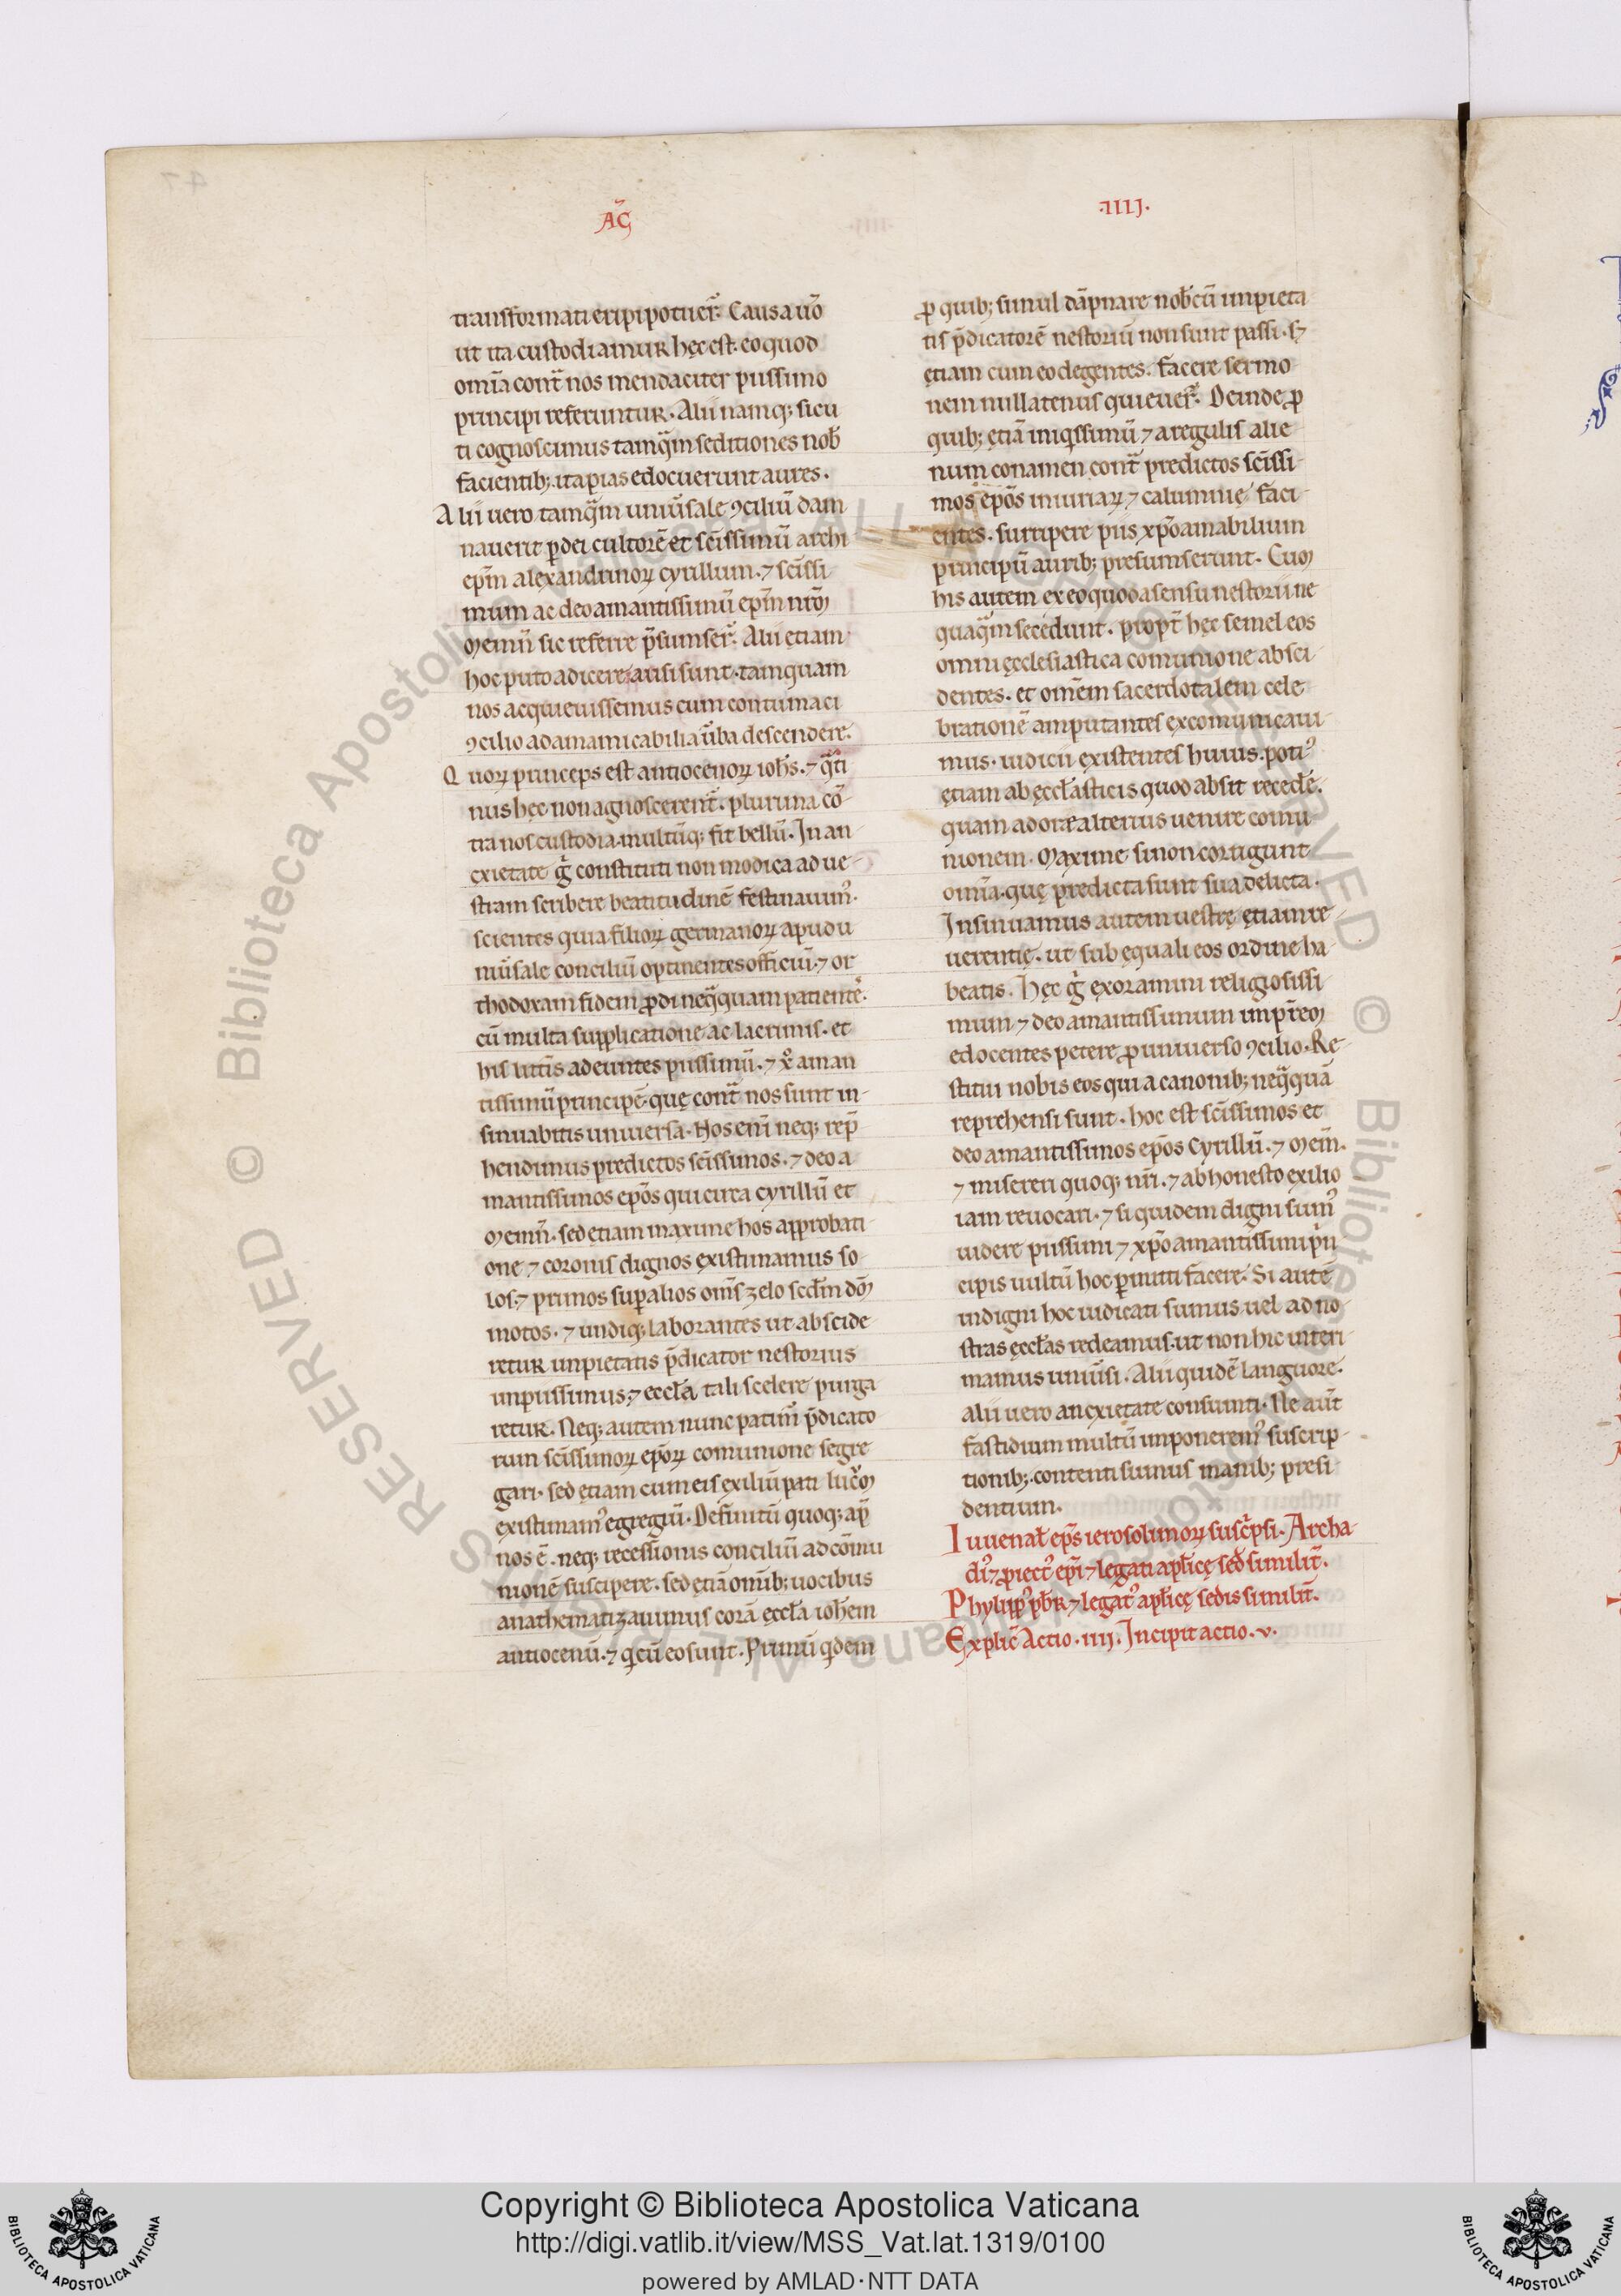 AĈ
·IIIJ·
transformati eripi potuer̄. Causa uō
ut ita custodiamur hęc est. eo quod
om̄ia cont̄ nos mendaciter piissimo
principi referuntur. Alii namq; sicu
ti cognoscimus tamq̄m seditiones nob̄
facientib; ita pias edocuerunt aures.
Alii uero tamq̄m uniūsale ꝯciliū dam
nauerit ꝓ dei cultorē et sc̄issimū archi
ep̄m alexandrinoꝝ cyrillum. ⁊ sc̄issi
mum ac deo amantissimū ep̄m nr̄m
Memn̄ sic referre p̄sumser̄. Alii ętiam
hoc puto adicere ausi sunt. tamquam
nos acquieuissemus cum contumaci
ꝯcilio ad amamicabilia ūba descendere.
Quoꝝ princeps est antiocenoꝝ ioh̄s. ⁊ q̄ti
nus hęc non agnoscerent̄. plurima cō
tra nos custodia. multūq; fit bellū. In an
exietate g̊ constituti non modica ad ue
stram scribere beatitudinē festinauim᷒.
scientes quia filioꝝ germanoꝝ apud u
niūsale conciliū optinentes officiū. ⁊ or
thodoxam fidem ꝓdi neq̄quam patient̄.
cū multa supplicatione ac lacrimis. et
his litt̄is adeuntes piissimū. ⁊ x̄p̄o aman
tissimū principē. quę cont̄ nos sunt in
sinuabitis uniuersa. Nos enī neq; rep̄
hendimus predictos sc̄issimos. ⁊ deo a
mantissimos ep̄os qui circa cyrillū et
Memn̄. sed ętiam maxime hos approbati
one ⁊ coronis dignos existimamus so
los. ⁊ primos sup alios om̄s zelo scd̄m dm̄
motos. ⁊ undiq; laborantes ut abscide
retur impietatis p̄dicator nestorius
impiissimus. ⁊ eccl̄a tali scelere purga
retur. Neq; autem nunc patimr̄ p̄dicato
rum sc̄issimoꝝ ep̄oꝝ comunione segre
gari. sed ętiam cum eis exiliū pati lucr̄m
existimam᷒ egregiū. Definitū quoq; ap̄
nos ē. neq; recessionis conciliū ad comu
nionē suscipere. sed ętiā omīb; uocibus
anathematizauimus corā eccl̄a ioh̄em
antiocenū. ⁊ qͥ cū eo sunt. Primū qͥdem
ꝓ quib; simul dāpnare nob̄cū impieta
tis p̄dicatorē nestoriū non sunt passi. s;
ętiam cum eo degentes. facere sermo
nem nullatenus quieuer̄. Deinde ꝓ
quib; ętiā iniqͥssimū ⁊ a regulis alie
num conamen cont̄ predictos sc̄issi
mos ep̄os iniuriaꝝ ⁊ calumnię faci
entes. surripere piis xp̄o amabilium
principū aurib; presumserunt. Cum
his autem ex eo quod a sensu nestorii ne
quaq̄m secedunt. propt̄ hęc semel eos
omni ęcclesiastica comunione absci
dentes. et om̄em sacerdotalem cele
brationē amputantes excomunicaui
mus. iudicii existentes huius. poti᷒
ętiam ab ęccl̄asticis quod absit recede.
quam ad orae alterius uenire comu
nionem. Maxime si non corrigunt
om̄ia. quę predicta sunt sua delicta.
Insinuamus autem uestrę ętiam re
uerentię. ut sub equali eos ordine ha
beatis. Hęc g̊ exoramini religiosissi
mum ⁊ deo amantissimum impr̄em
edocentes petere ꝓ uniuerso ꝯcilio. Re
stitui nobis eos qui a canonib; neq̄quā
reprehensi sunt. hoc est sc̄issimos et
deo amantissimos ep̄os Cyrillū. ⁊ Mem̄.
⁊ misereri quoq; nr̄i. ⁊ ab honesto exilio
iam reuocari. ⁊ si quidem digni sum᷒
uidere piissimi ⁊ xp̄o amantissimi pͥn
cipis uultū hoc ꝑmitti facere. Si autē
indigni hoc iudicati sumus uel ad no
stras ęccl̄as redeamus. ut non hic interi
mamus uniūsi. Alii quidē languore.
alii uero anexietate consumti. Ne aut̄
fastidium multū imponerem᷒ suscrip
tionib; contenti sumus manib; presi
dentium.
Iuuenal̄ ep̄s ierosolimoꝝ suscͥpsi. Archa
di᷒ ⁊ ꝓiect᷒ ep̄i ⁊ legati apl̄icę sed̄ similit̄.
Phylipp᷒ pb̄r ⁊ legat᷒ apl̄icę sedis similit̄.
Explic̄ Actio. IIII. Incipit actio. v.
© Biblioteca Apostolica Vaticana ALL RIGHTS RESERVED
© Biblioteca Apostolica Vaticana ALL RIGHTS RESERVED
Copyright © Biblioteca Apostolica Vaticana
http://digi.vatlib.it/view/MSS_Vat.lat.1319/0100
powered by AMLAD·NTT DATA
BIBLIOTECA APOSTOLICA VATICANA
BIBLIOTECA APOSTOLICA VATICANA